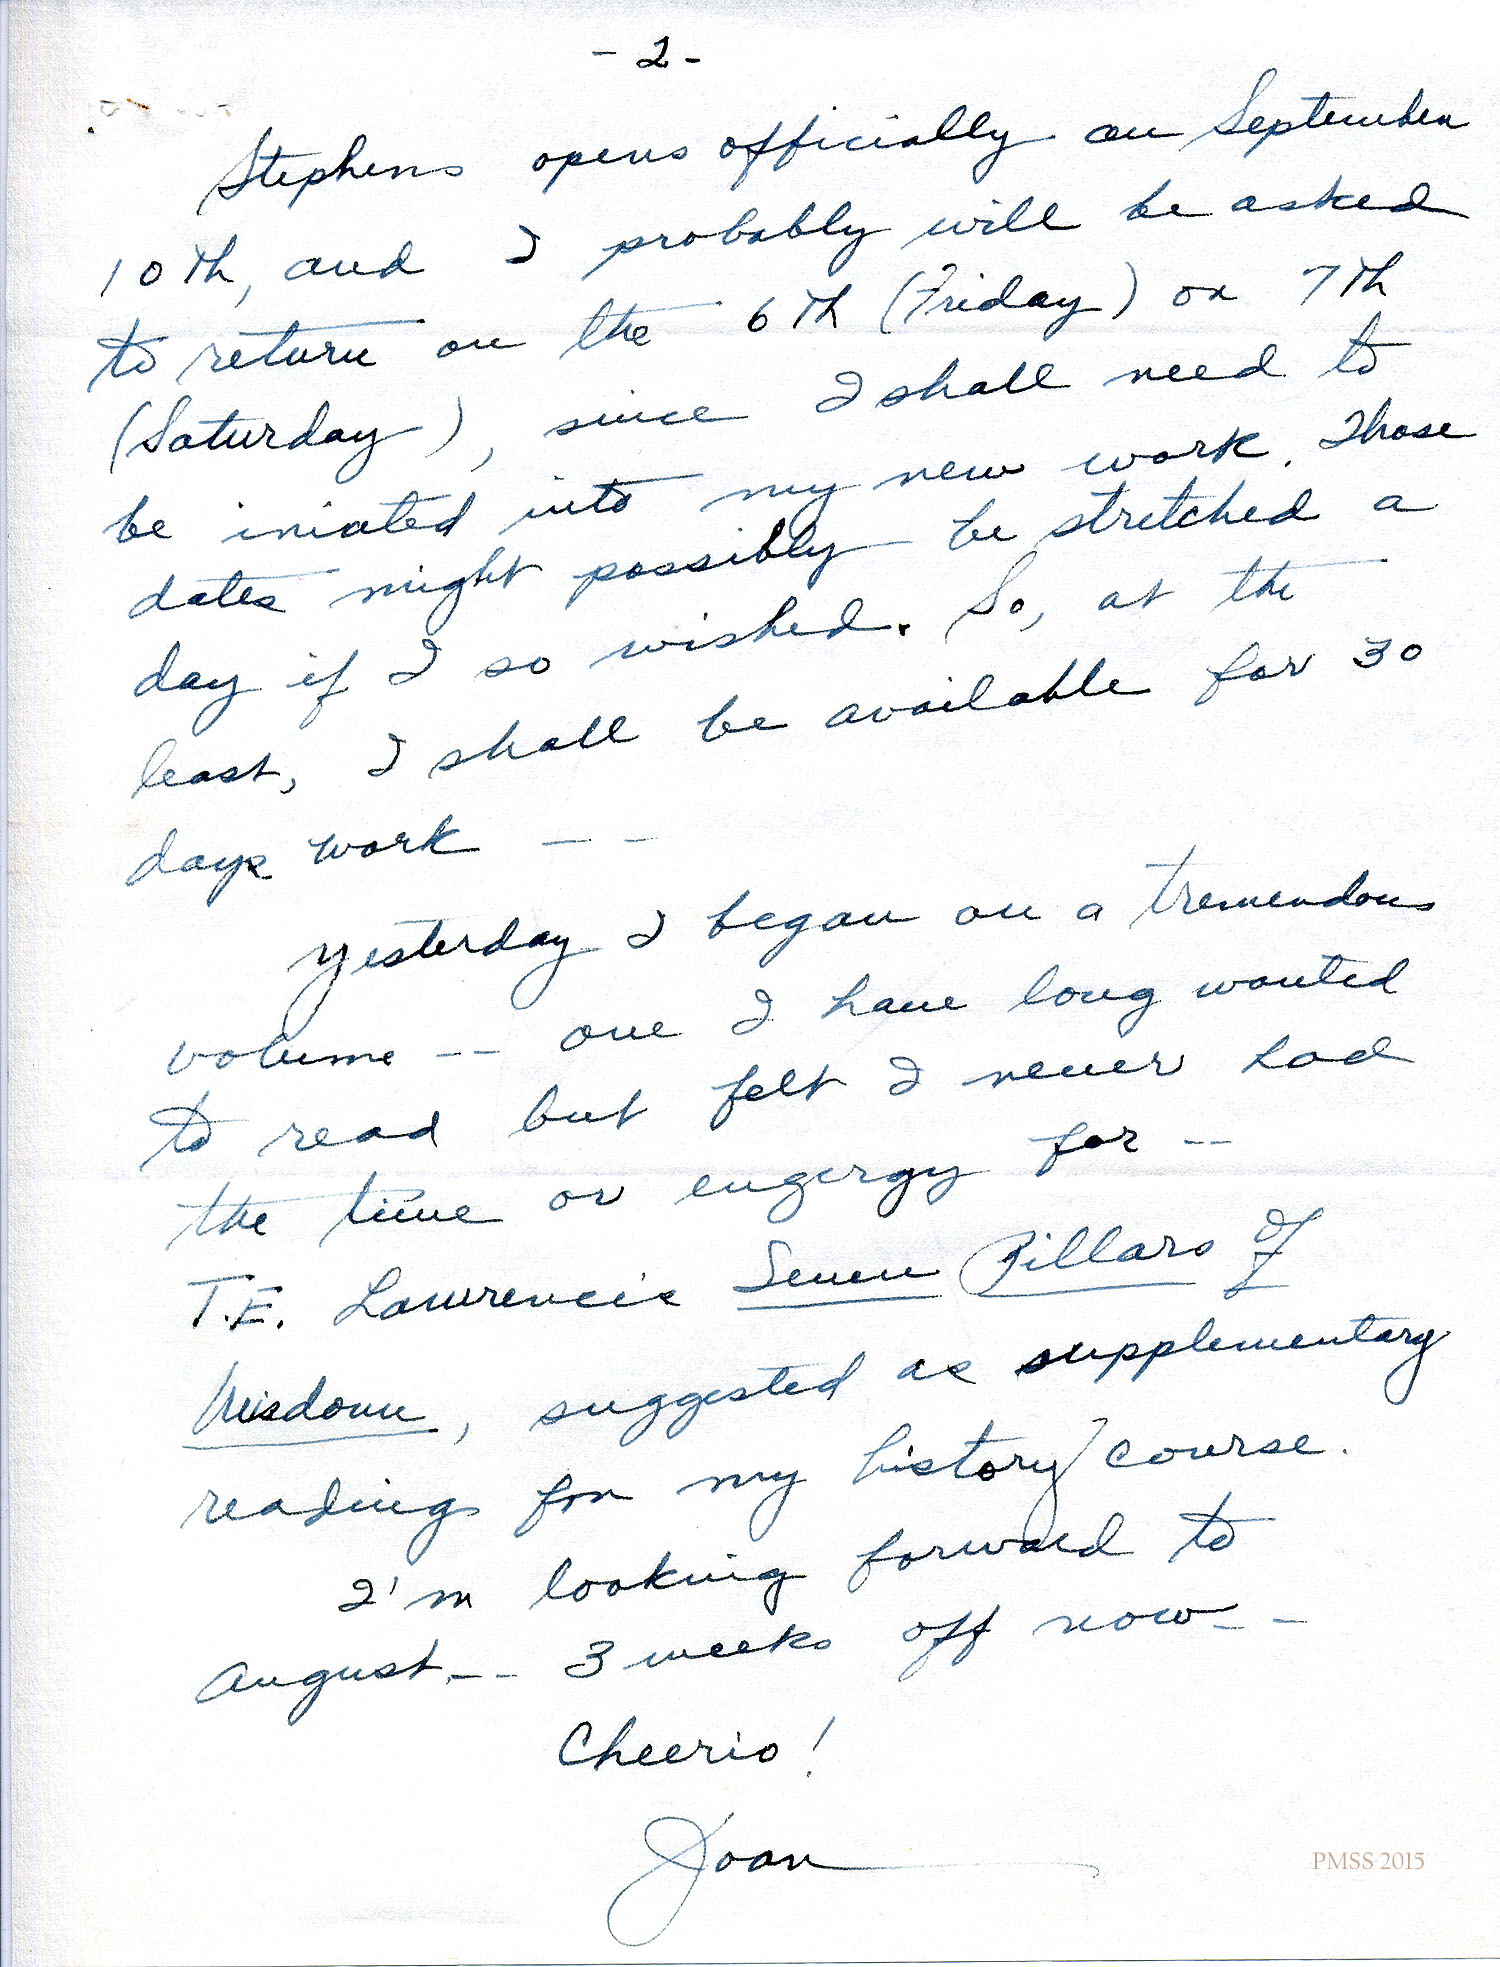 - 2 -
Stephens opens officially on September
10th, and I probably will be asked
to return on the 6th (Friday) or 7th
(Saturday), since I shall need to
be iniated into my new work. Those
dates might possibly be stretched a
day if I so wished. So, at the
least, I shall be available for 30
days work - -
Yesterday I began on a tremendous
volume -- one I have long wanted
to read but felt I never had
the time or engergy for --
T.E. Lawrence's Seven Pillars Of
Wisdom, suggested as supplementary
reading for my history course.
I'm looking forward to
August -- 3 weeks off now --
Cheerio!
Joan
PMSS 2015